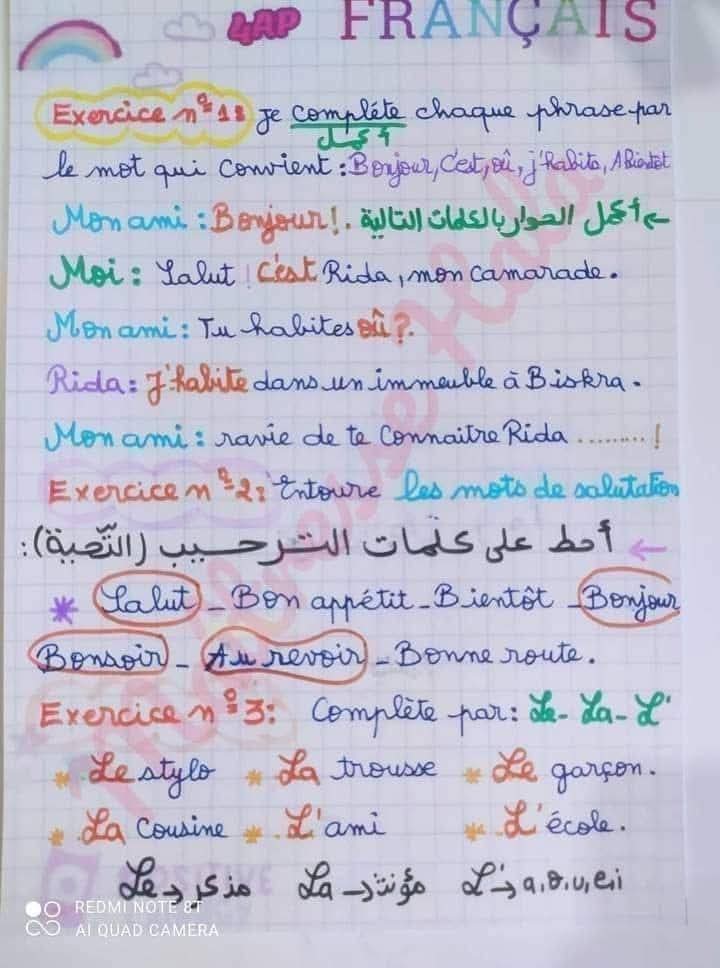 4AP FRANÇAIS
Exercice n°1: Je complète chaque phrase par
أكمل
le mot qui convient : Bonjour, C'est, où, j'habite, A Bientôt
Mon ami : Bonjour!. أكمل الحوار بالكلمات التالية ←
Moi : Salut ! C'est Rida, mon camarade.
Mon ami : Tu habites où ?.
Rida : J'habite dans un immeuble à Biskra.
Mon ami : ravie de te connaitre Rida .........!
Exercice n°2: Entoure les mots de salutation
أحط على كلمات الترحيب (التّحية): ←
* Salut - Bon appétit - Bientôt - Bonjour
Bonsoir - Au revoir - Bonne route.
Exercice n°3: Complète par : Le - La - L'
* Le stylo * La trousse * Le garçon.
* La cousine * L'ami * L'école.
Le → مذكر La → مؤنث L' → a, o, u, e, i
REDMI NOTE 8T
AI QUAD CAMERA